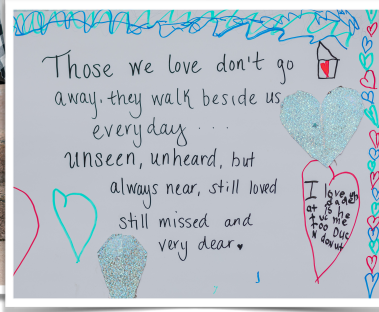 Those we love don't go
away. they walk beside us
everyday ...
unseen, unheard, but
always near, still loved
still missed and
very dear.
I love